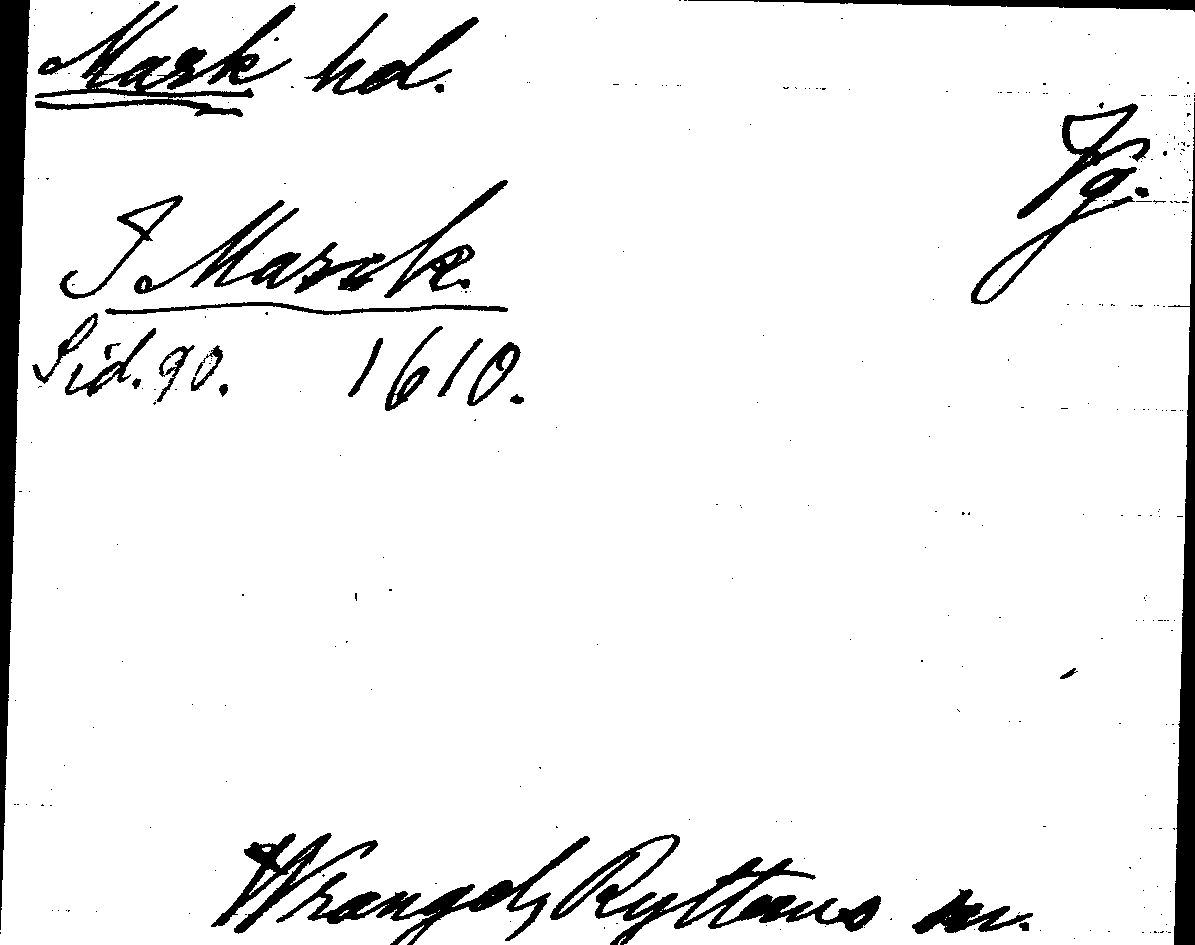 Mark hd.
Vg.
I Marck.
Sid. 90. 1610.
Wrangel, Ryttares